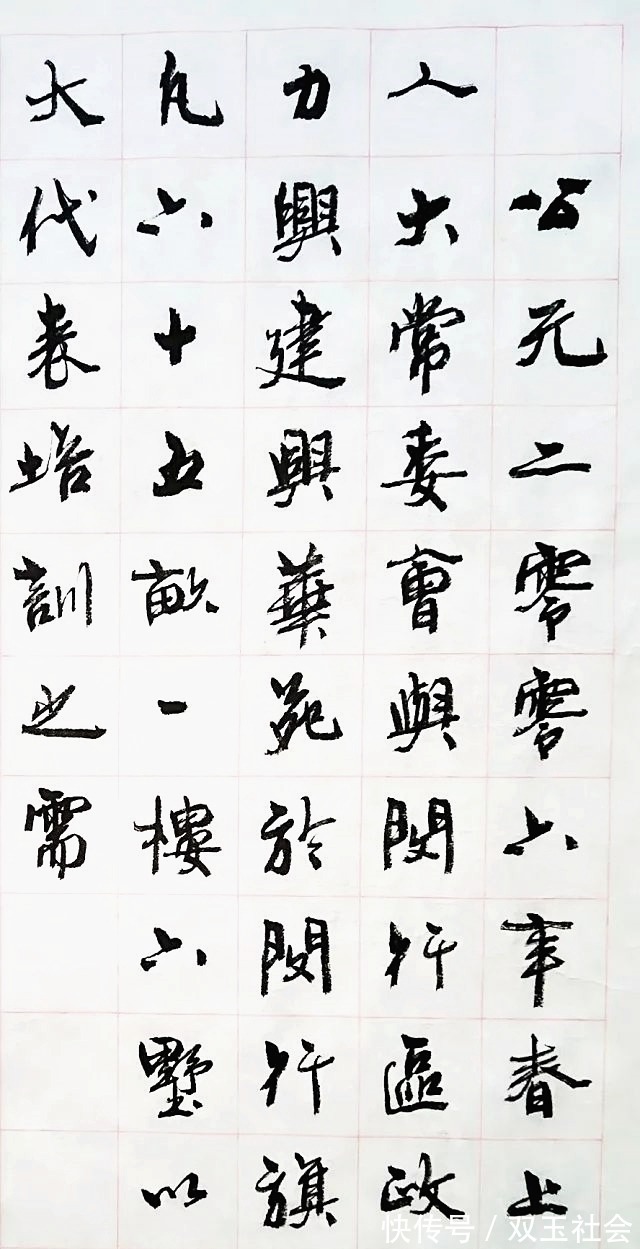 公元二零零六年春上
人大常委會與閔行區政
力興建興華苑於閔行旗
凡六十五畝一樓六墅以
大代表培訓之需
快传号/双玉社会